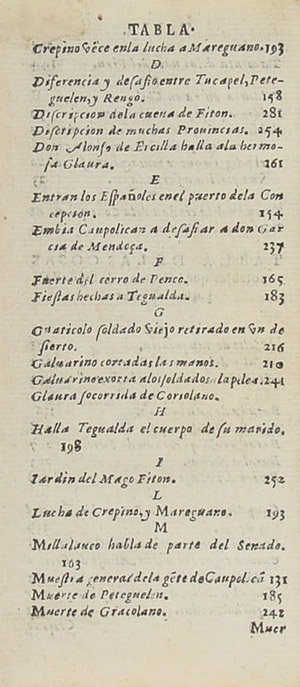 .TABLA.
Crepino vẽce en la lucha a Mareguano. 193
D
Diferencia y desafio entre Tucapel, Pete-
guelen, y Rengo. 158
Discripcion de la cueua de Fiton. 281
Discripcion de muchas Prouincias. 254
Don Alonso de Ercilla halla a la hermo-
sa Glaura. 261
E
Entran los Españoles en el puerto de la Con
cepcion. 154
Embia Caupolican a desafiar a don Gar
cia de Mendoça. 237
F
Fuerte del cerro de Penco. 165
Fiestas hechas a Tegualda. 183
G
Guaticolo soldado viejo retirado en vn de
sierto. 216
Galuarino cortadas las manos. 210
Galuarino exorta a los soldados la pelea. 241
Glaura socorrida de Coriolano.
H
Halla Tegualda el cuerpo de su marido.
198
I
Iardin del Mago Fiton. 252
L
Lucha de Crepino, y Mareguano. 193
M
Millalauco habla de parte del Senado.
163
Muestra general de la gẽte de Caupol. cã 131
Muerte de Peteguelen. 185
Muerte de Gracolano. 242
Muer